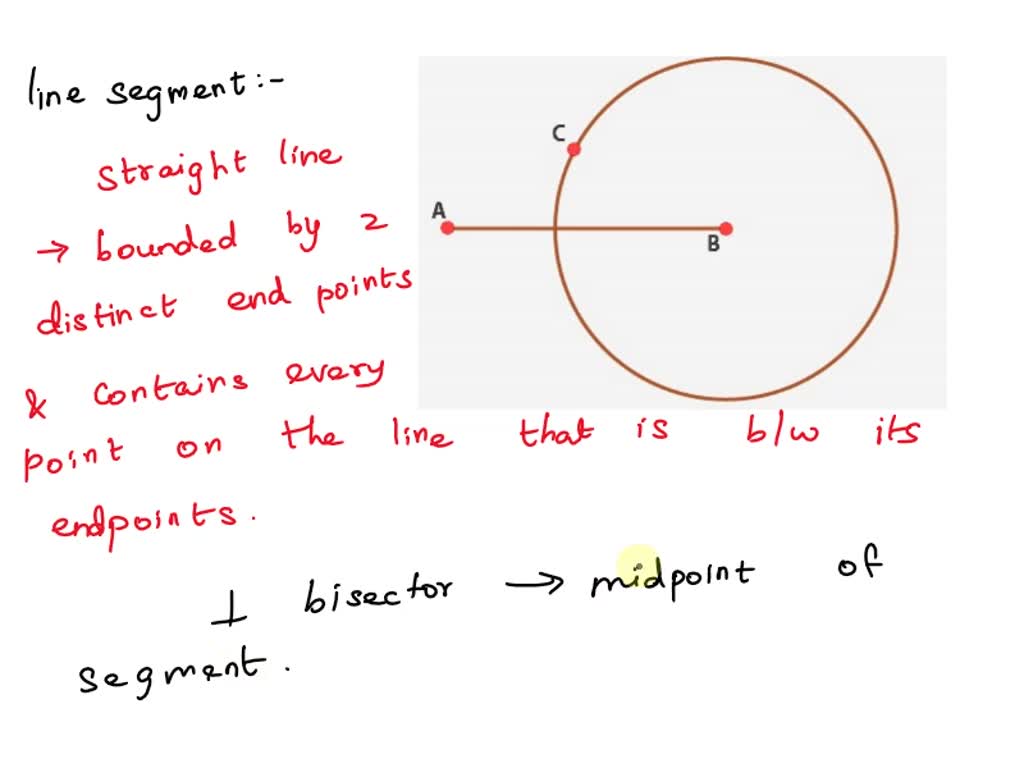 line segment:-
straight line
→ bounded by 2
distinct end points
& contains every
point on the line that is b/w its
endpoints.
⊥ bisector → midpoint of
segment.
C
A
B